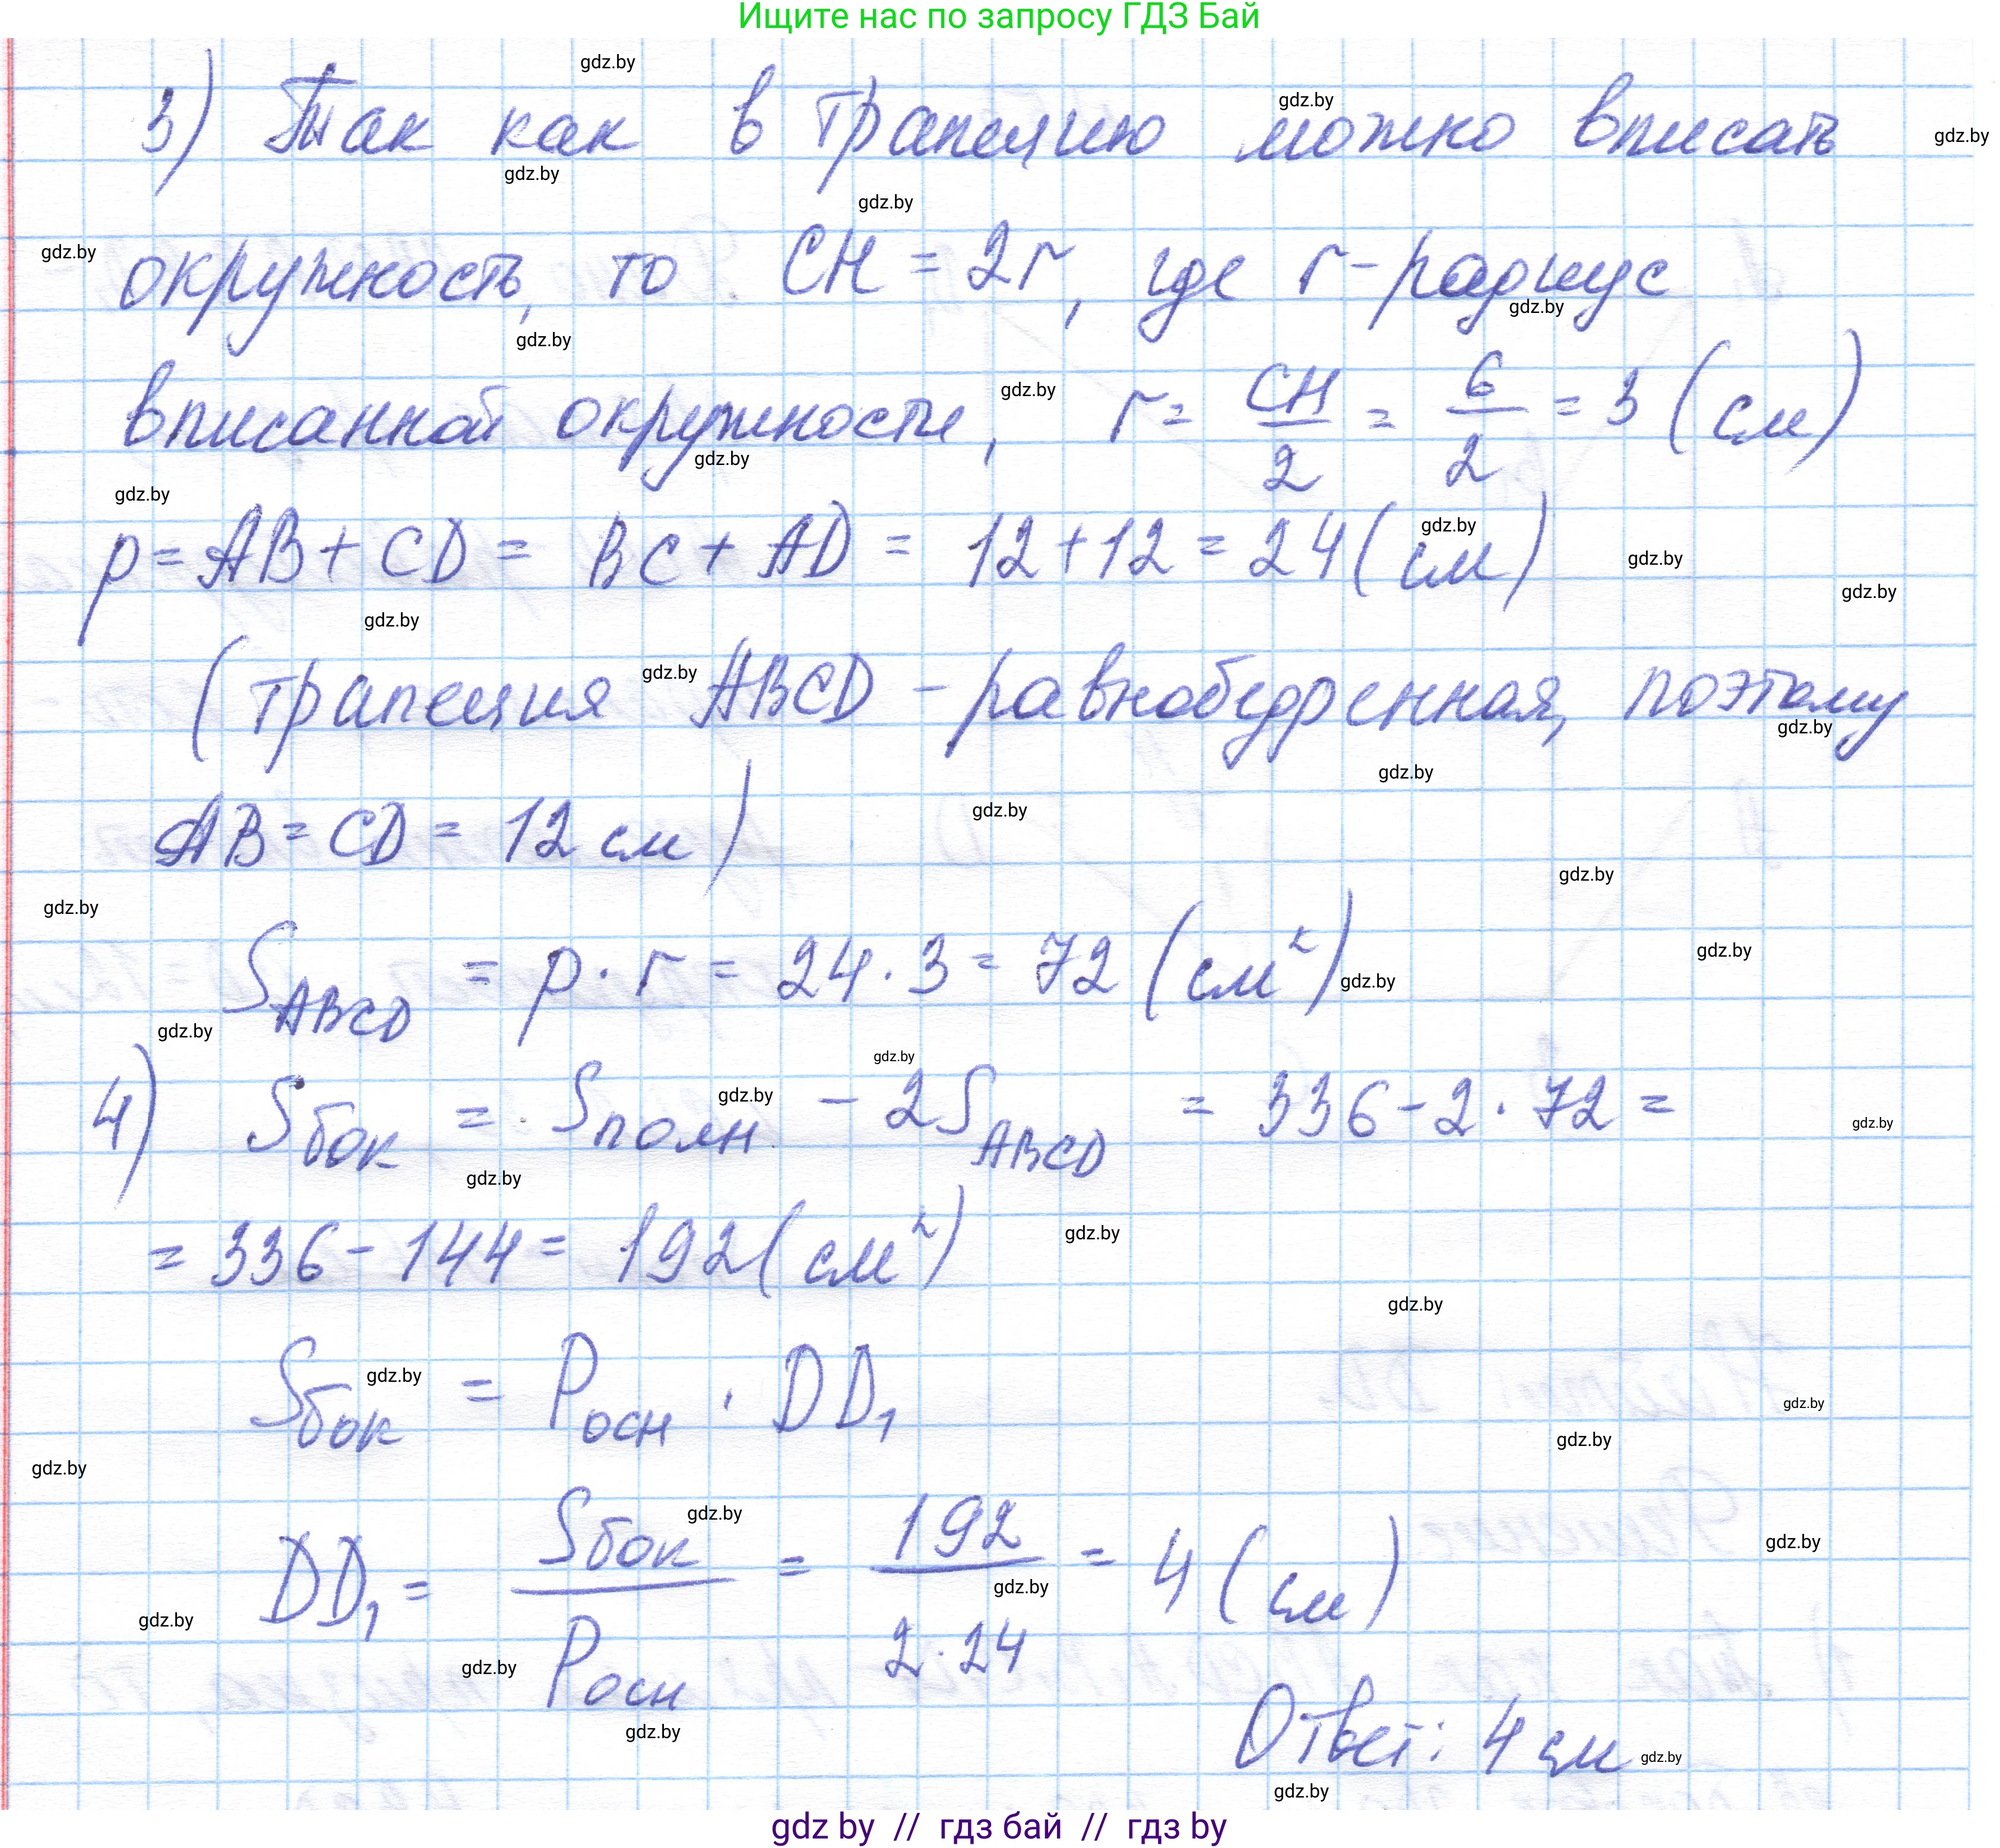 Ищите нас по запросу ГДЗ Бай
3) Так как в трапецию можно вписать
окружность, то CH = 2r, где r - радиус
вписанной окружности, r = CH/2 = 6/2 = 3 (см)
p = AB + CD = BC + AD = 12 + 12 = 24 (см)
(трапеция ABCD - равнобедренная, поэтому
AB = CD = 12 см)
S ABCD = p · r = 24 · 3 = 72 (см²)
4) Sбок = Sполн - 2S ABCD = 336 - 2 · 72 =
= 336 - 144 = 192 (см²)
Sбок = Pосн · DD₁
DD₁ = Sбок/Pосн = 192/2·24 = 4 (см)
Ответ: 4 см
gdz by // гдз бай // гдз by